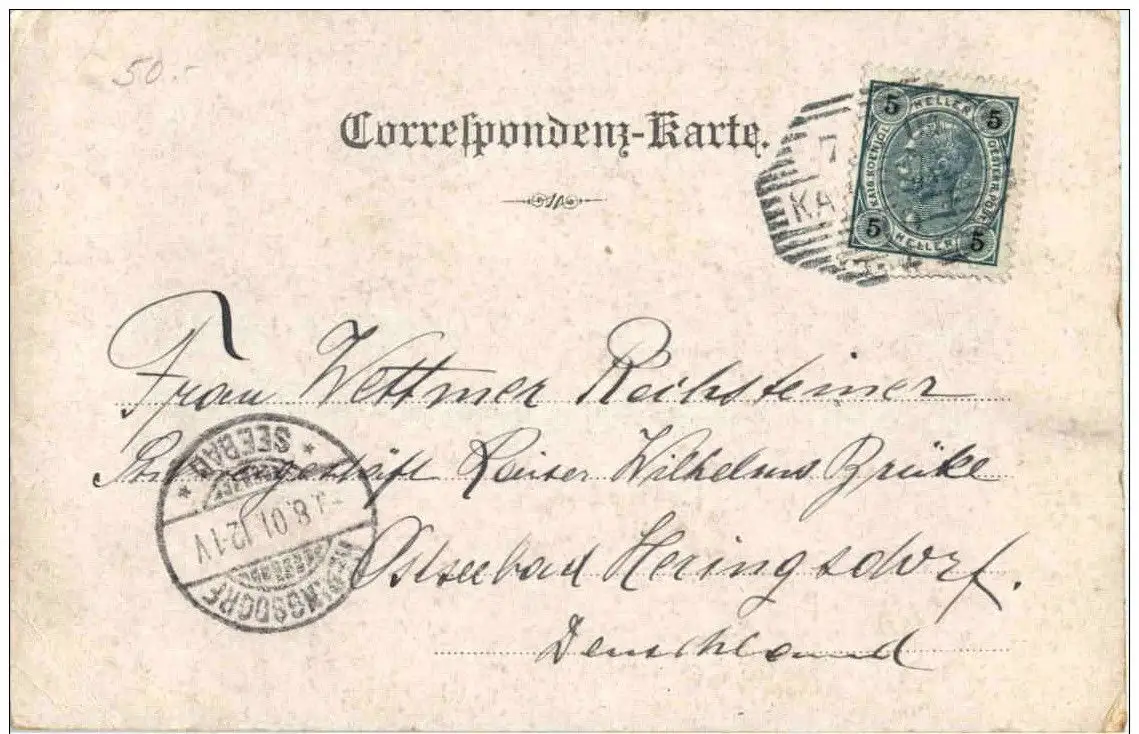 50.-
Correspondenz-Karte.
5 HELLER 5
KAIS. KOENIGL. OESTERR. POST
5 HELLER 5
7
KA
Frau Wettmer Rechsteiner
Kaiser Wilhelms Brüke
Ostseebad Heringsdorf.
Deuschland
SEEBAD
8.01.12-1V
HERINGSDORF